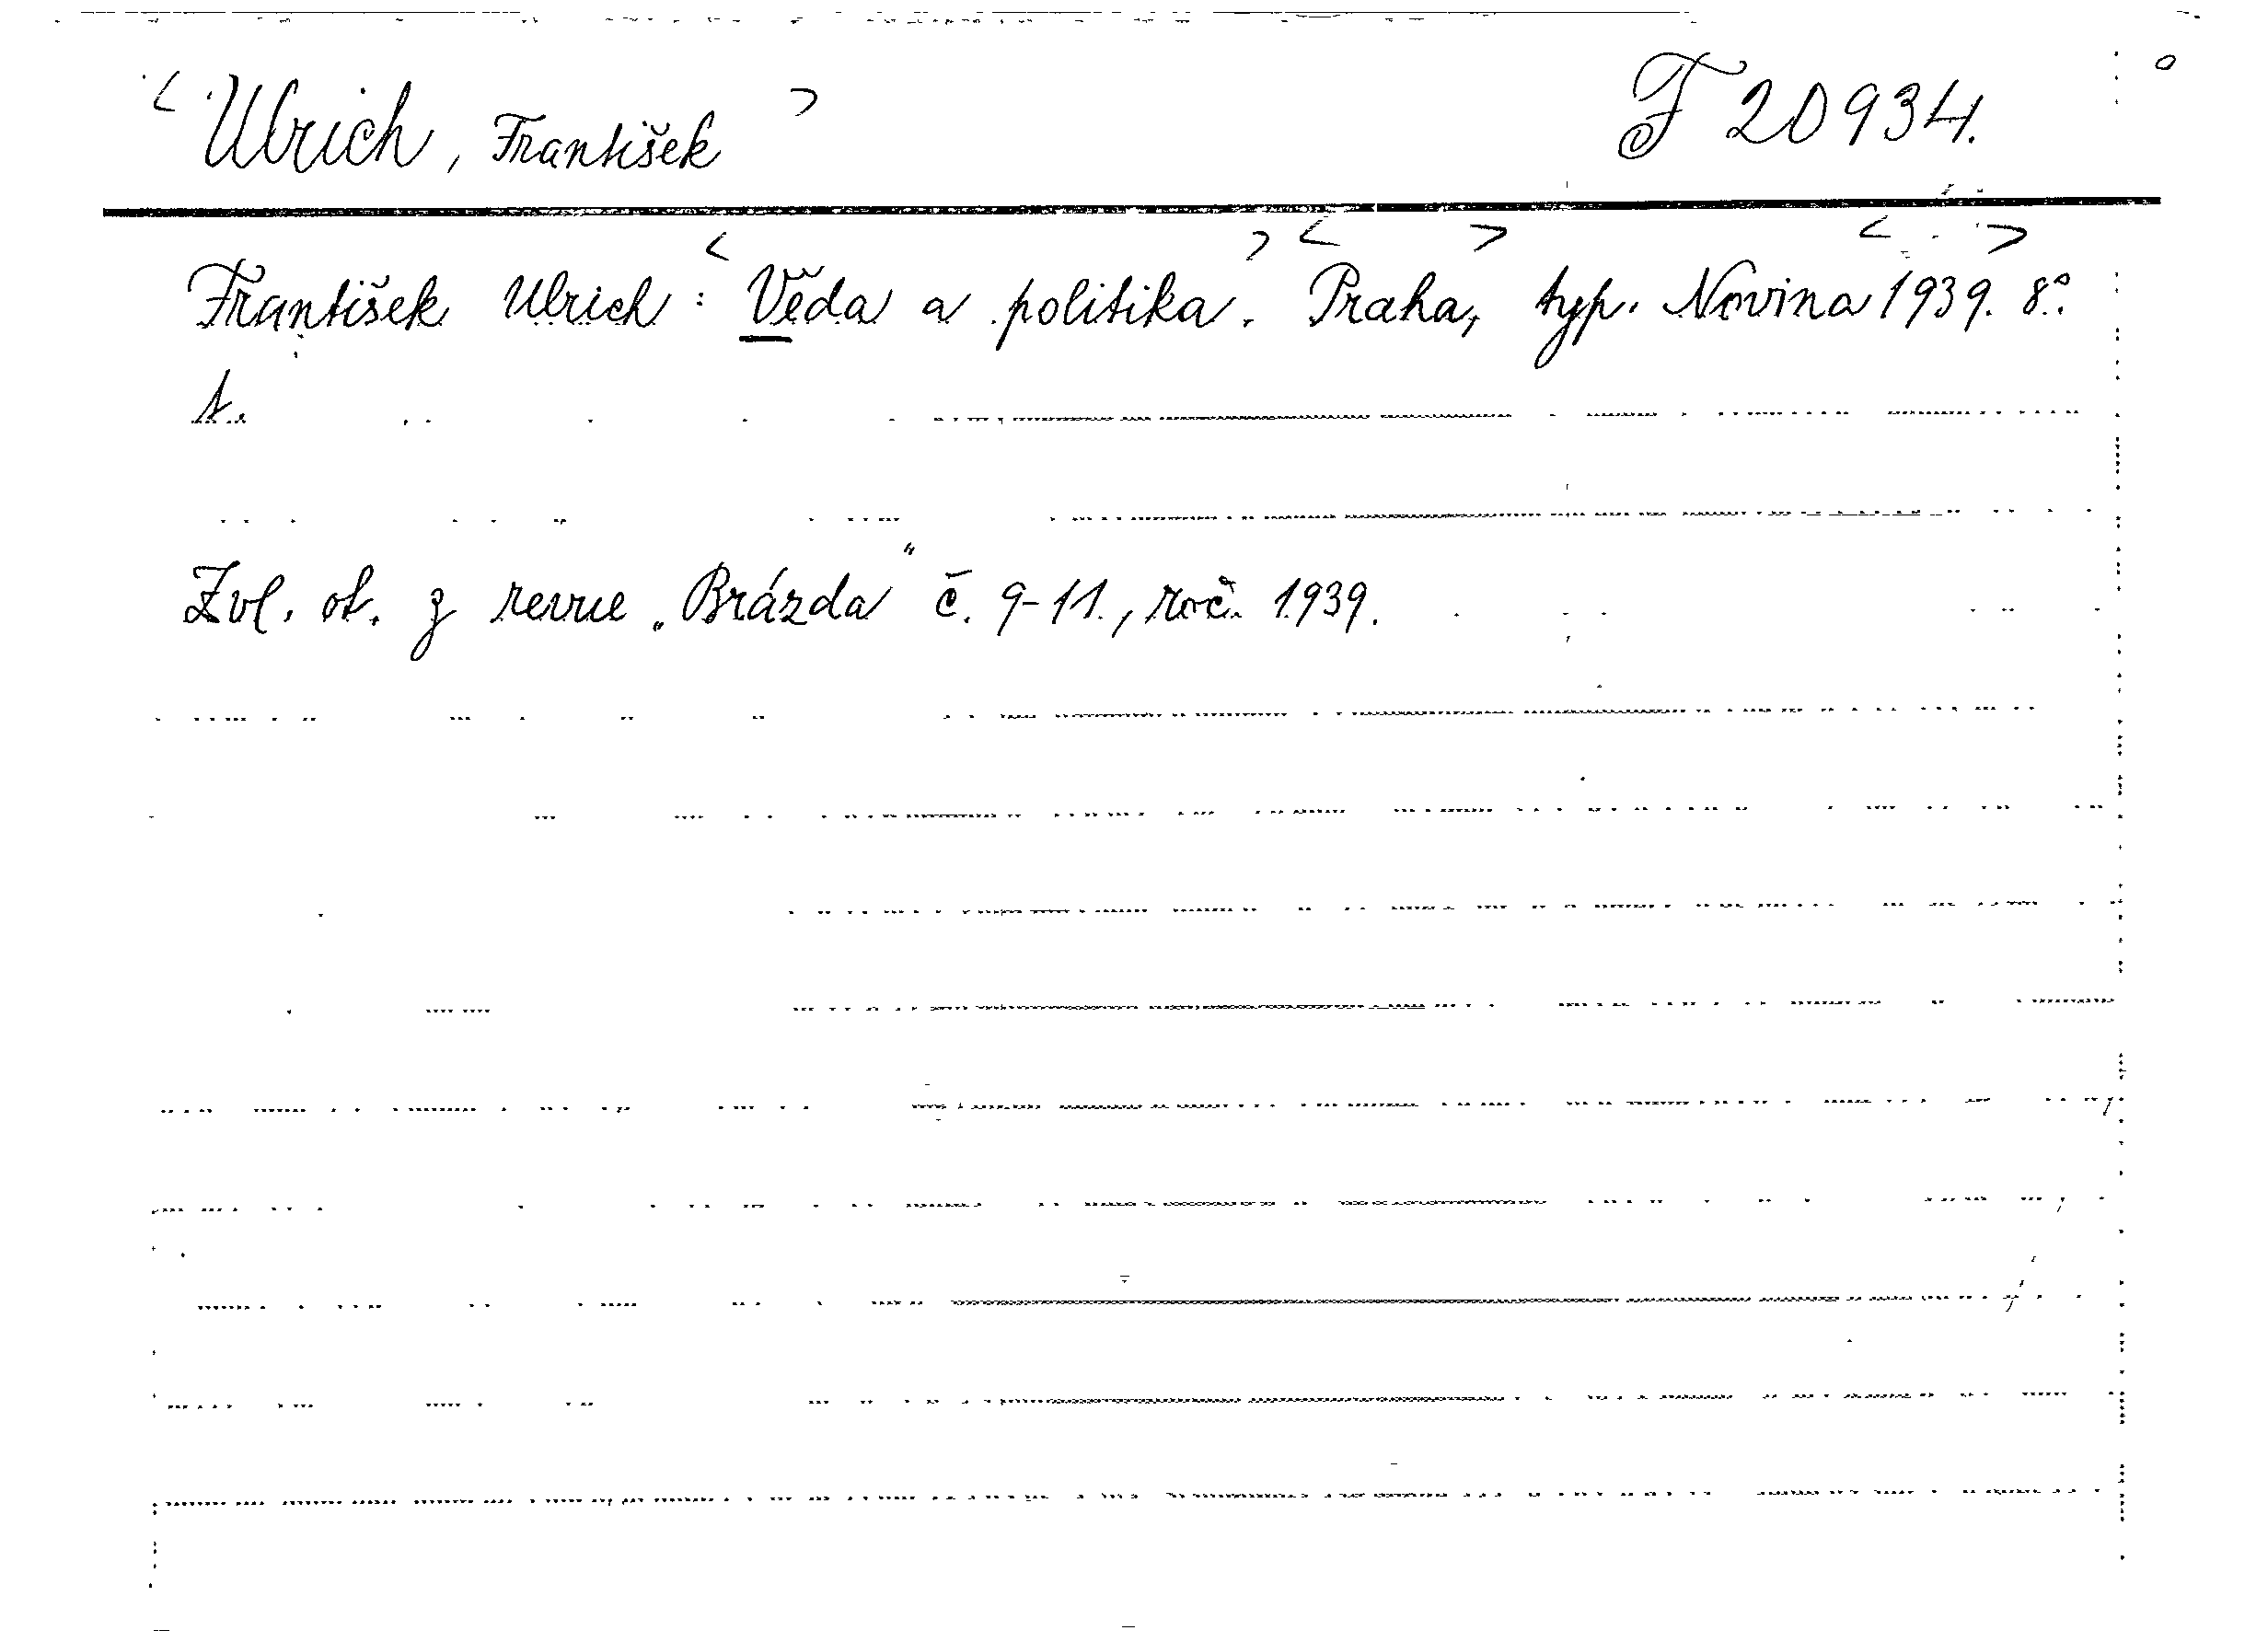 <Ulrich, František> F 20934.
František Ulrich: <Věda a politika.> <Praha,> typ. Novina <1939.> 8°.
t.
Zvl. ot. z revue „Brázda" č. 9-11., roč. 1939.